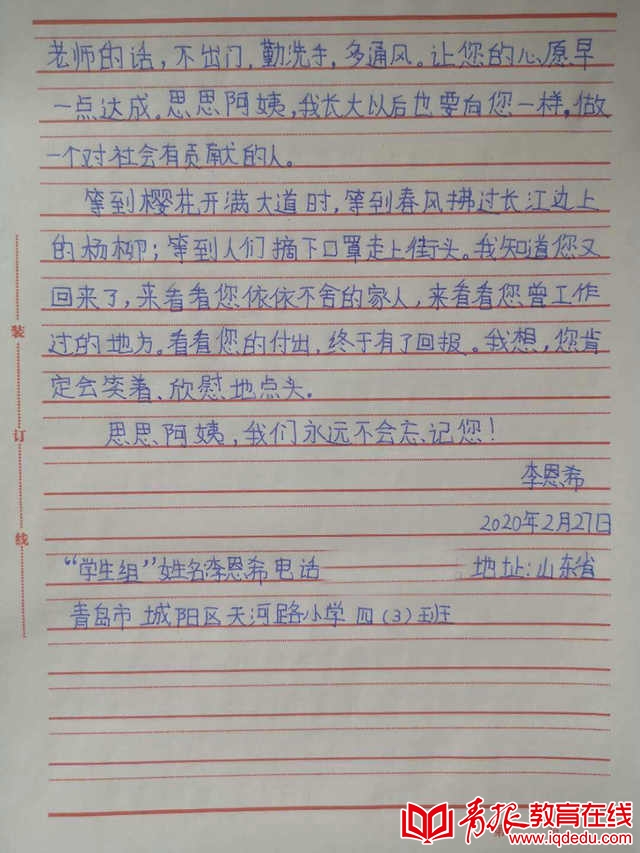 老师的话，不出门，勤洗手，多通风。让您的心愿早
一点达成。思思阿姨，我长大以后也要向您一样，做
一个对社会有贡献的人。
等到樱花开满大道时，等到春风拂过长江边上
的杨柳；等到人们摘下口罩走上街头。我知道您又
回来了，来看看您依依不舍的家人，来看看您曾工作
过的地方。看看您的付出，终于有了回报。我想，您肯
定会笑着、欣慰地点头。
思思阿姨，我们永远不会忘记您！
李恩希
2020年2月27日
“学生组”姓名:李恩希 电话 地址:山东省
青岛市 城阳区天河路小学 四（3）班
装
订
线
青报教育在线
www.iqdedu.com